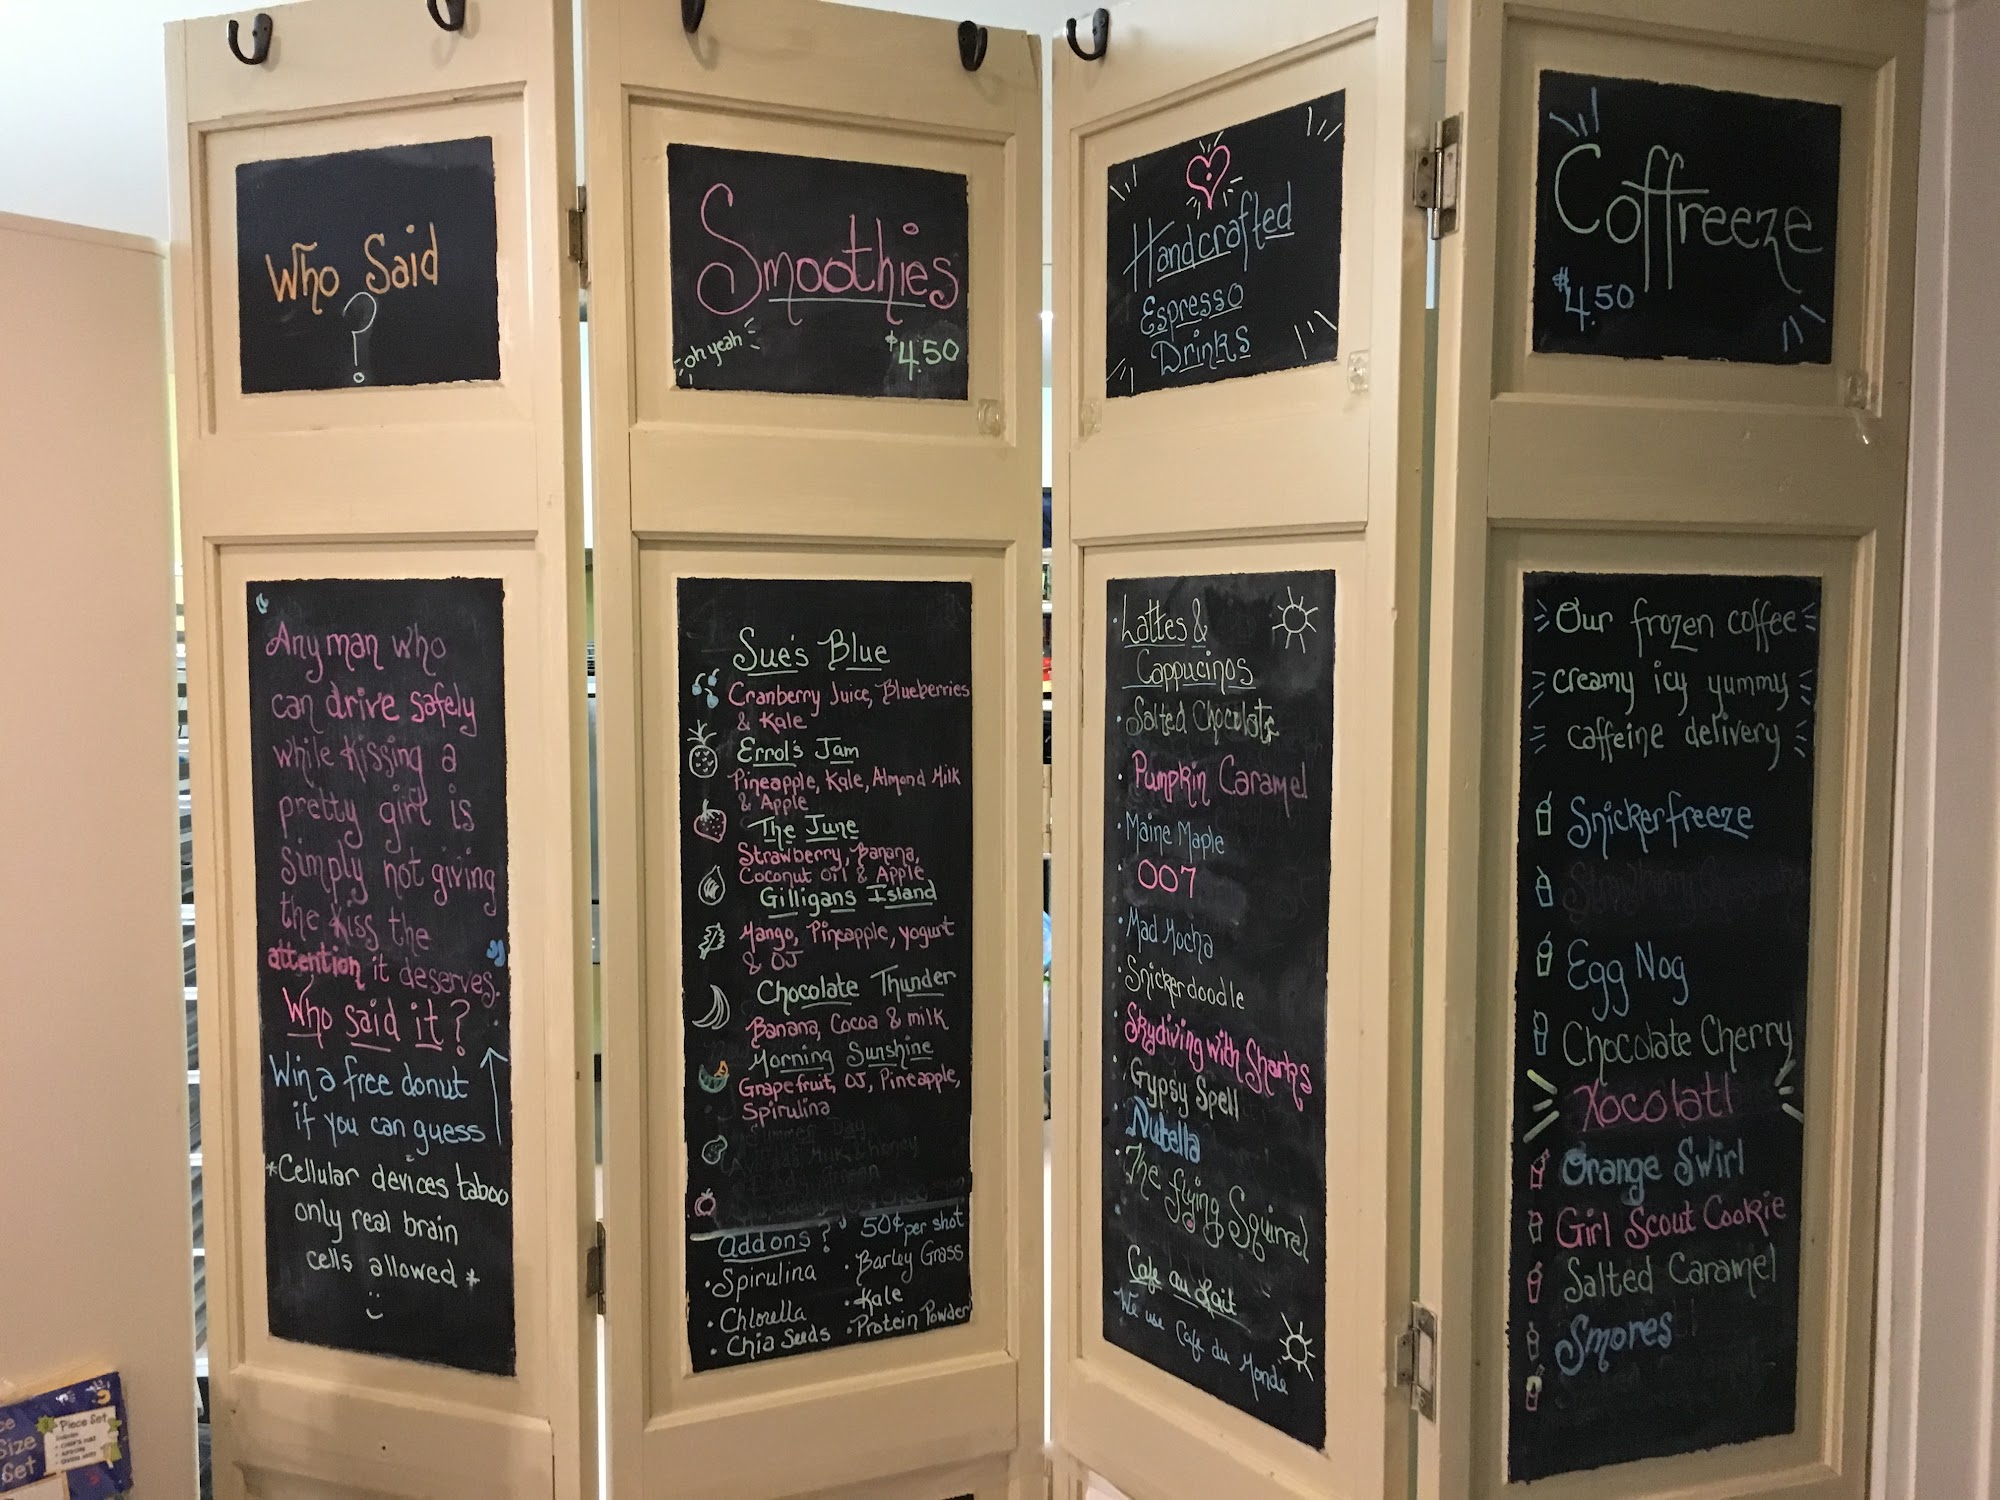 Who Said
?
Any man who
can drive safely
while kissing a
pretty girl is
simply not giving
the kiss the
attention it deserves.
Who said it?
Win a free donut
if you can guess
*Cellular devices taboo
only real brain
cells allowed*
Smoothies
oh yeah
$4.50
Sue's Blue
Cranberry Juice, Blueberries
& Kale
Errol's Jam
Pineapple, Kale, Almond Milk
& Apple
The June
Strawberry, Banana,
Coconut oil & Apple
Gilligans Island
Mango, Pineapple, yogurt
& OJ
Chocolate Thunder
Banana, Cocoa & milk
Morning Sunshine
Grapefruit, OJ, Pineapple,
Spirulina
Summer Day
addons? 50¢ per shot
• Spirulina
• Chlorella
• Chia Seeds
• Barley Grass
• Kale
• Protein Powder
Handcrafted
Espresso
Drinks
• Lattes &
Cappucinos
• Salted Chocolate
• Pumpkin Caramel
• Maine Maple
007
• Mad Mocha
• Snickerdoodle
Skydiving with Sharks
• Gypsy Spell
Nutella
• The flying Squirrel
Cafe au Lait
We use Cafe du Monde
Coffreeze
$4.50
Our frozen coffee
creamy icy yummy
caffeine delivery
Snickerfreeze
Egg Nog
Chocolate Cherry
Xocolatl
Orange Swirl
Girl Scout Cookie
Salted Caramel
Smores
Size
Set
Piece Set